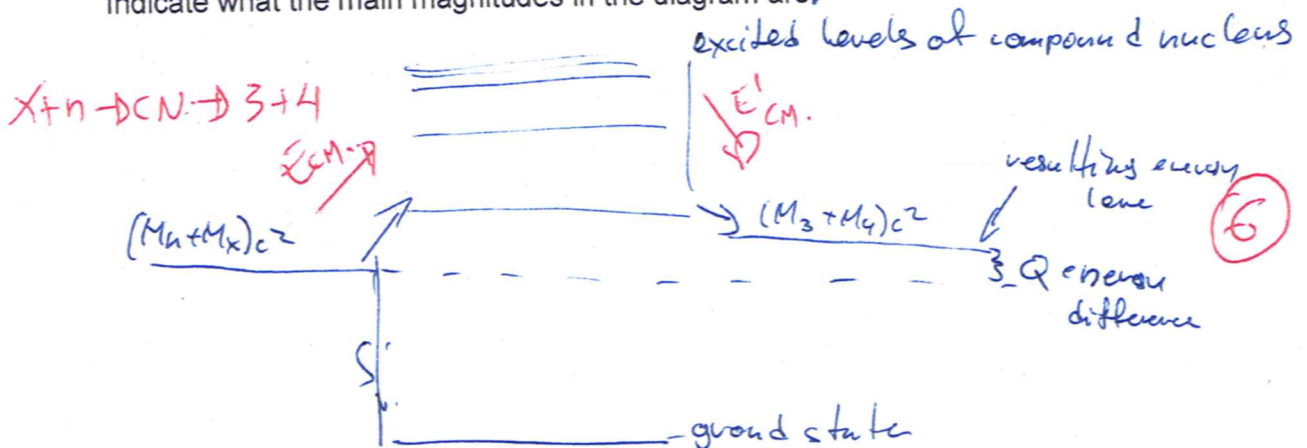 indicate what the main magnitudes in the diagram are.
excited levels of compound nucleus
X+n→CN→3+4
E'CM.
ECM.
resulting energy
(Mn+Mx)c²
(M3+M4)c²
6
Q energy
difference
S
ground state